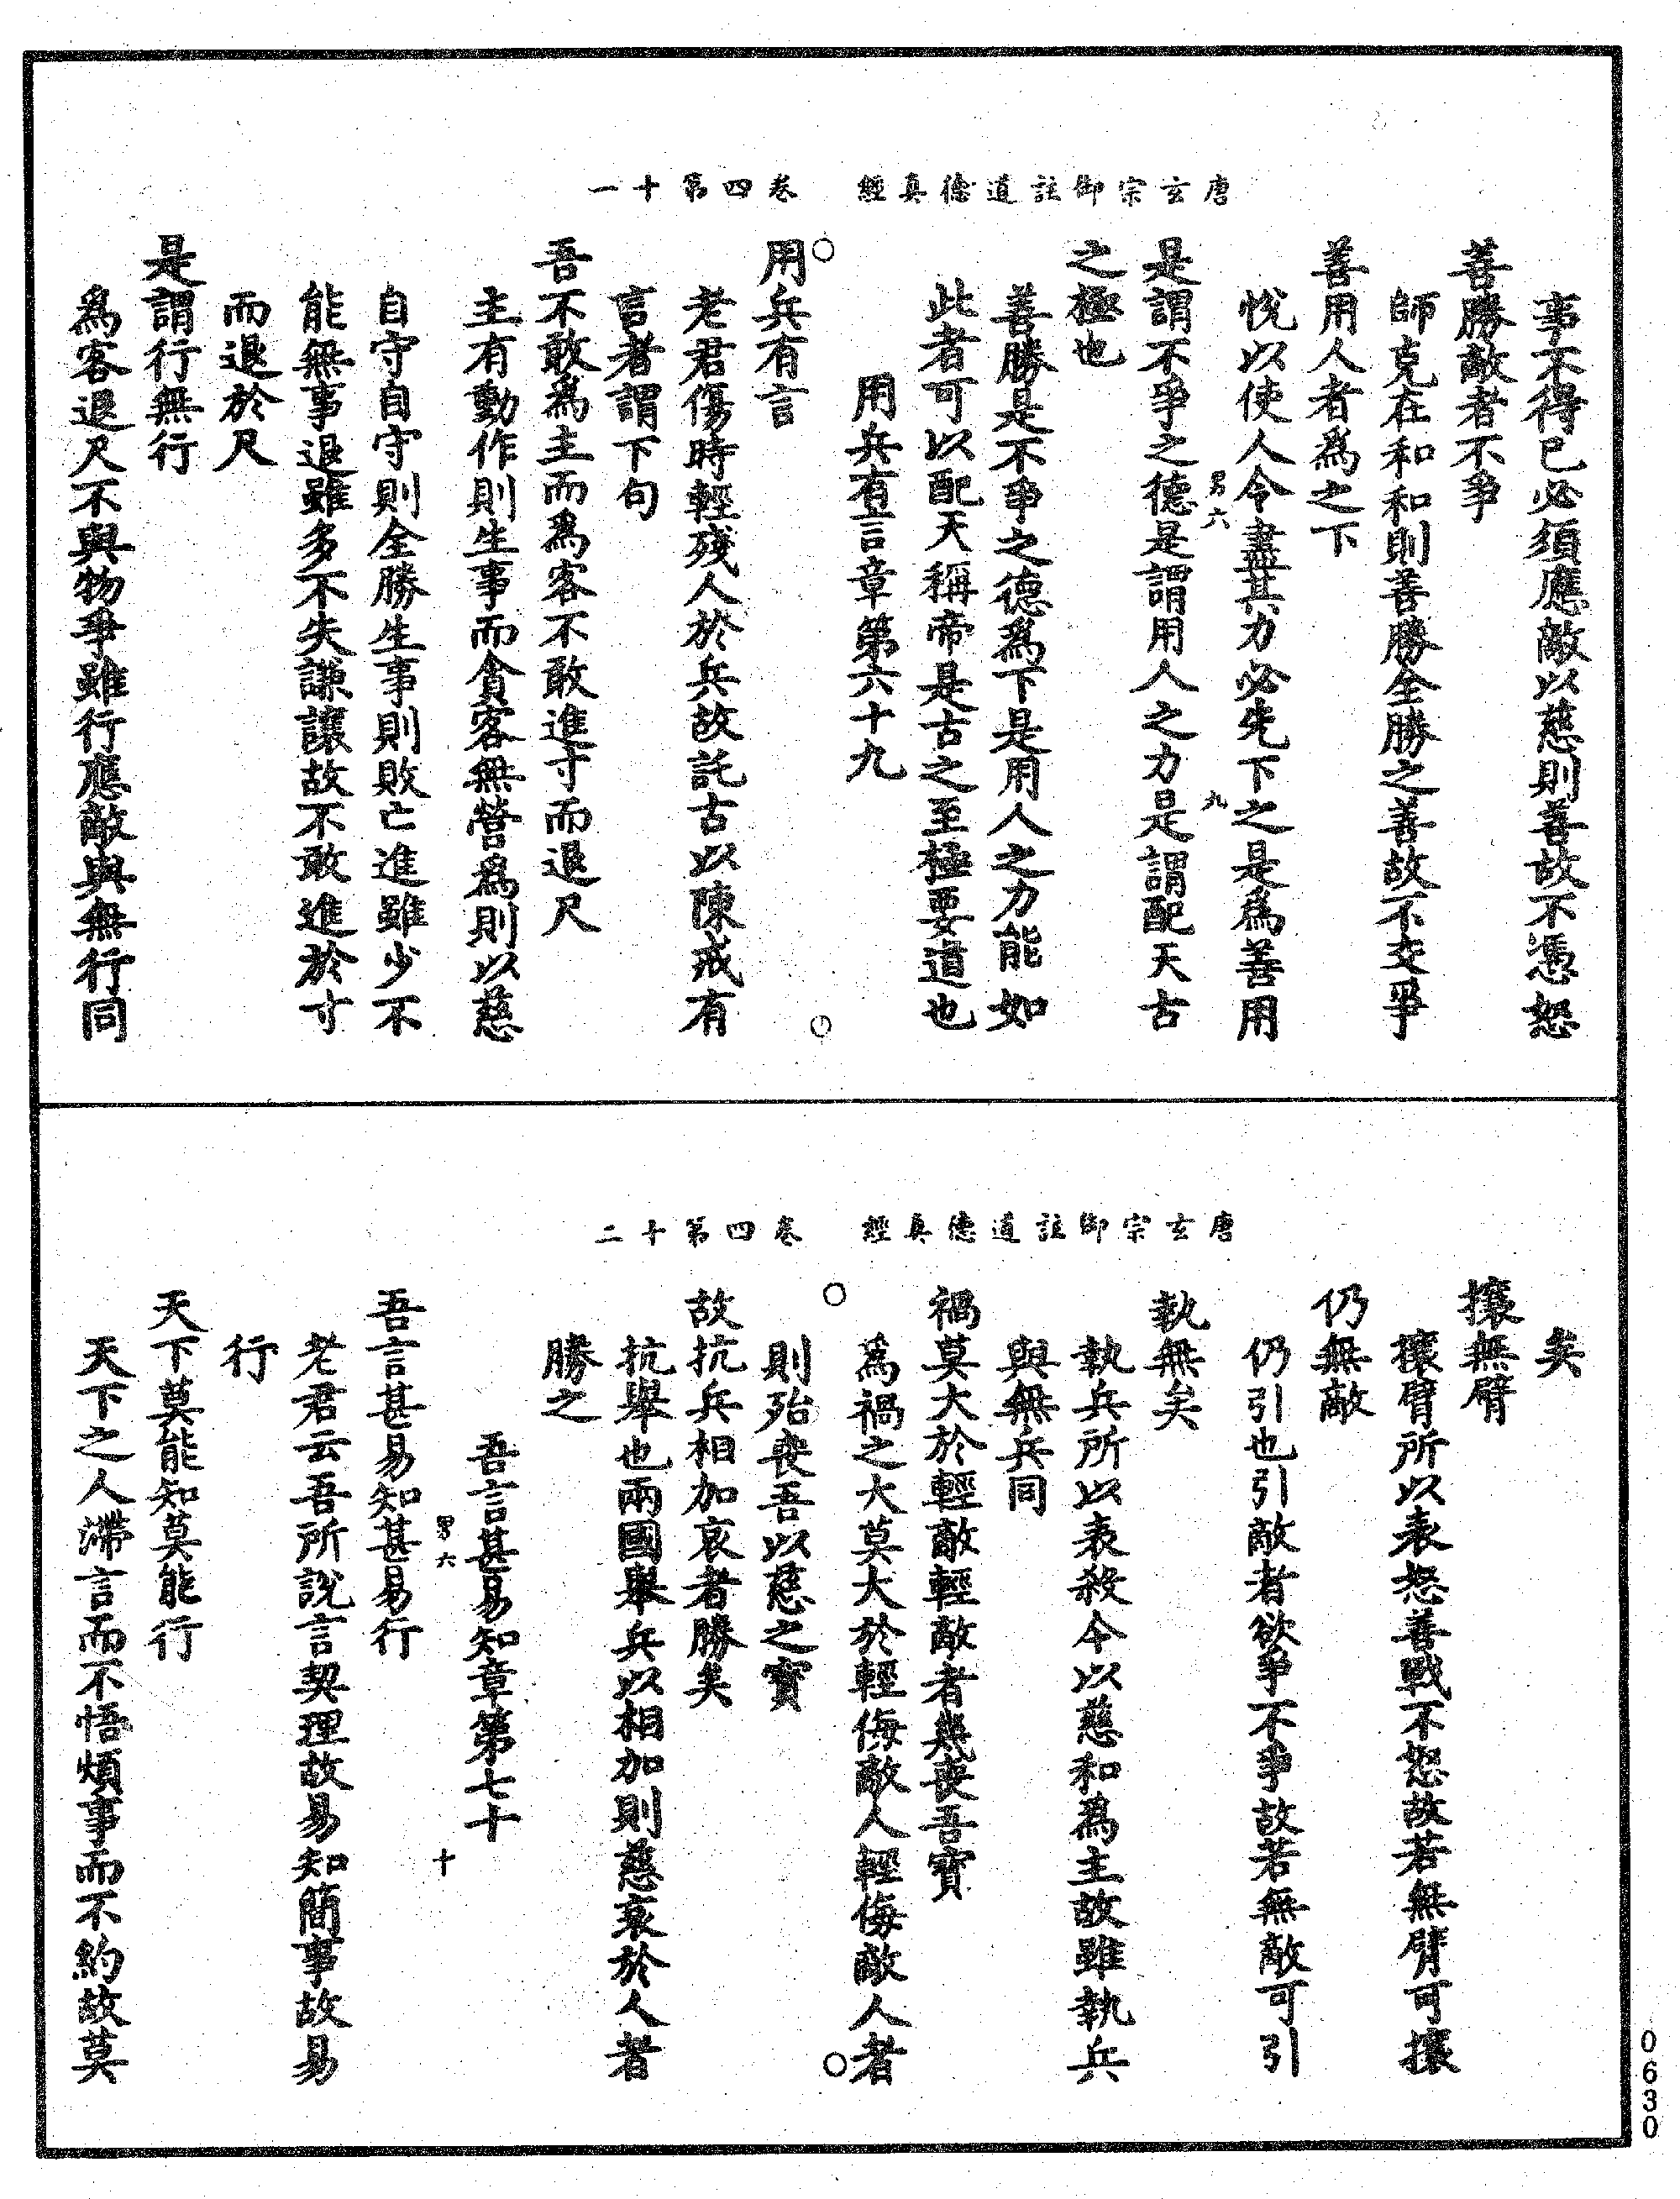 唐玄宗御註道德真經　卷四第十一
事不得已必須應敵以慈則善故不憑怒
善勝敵者不爭
師克在和和則善勝全勝之善故不交爭
善用人者為之下
悅以使人令盡其力必先下之是為善用
男六　九
是謂不爭之德是謂用人之力是謂配天古
之極也
善勝是不爭之德爲下是用人之力能如
此者可以配天稱帝是古之至極要道也
用兵有言章第六十九
用兵有言
老君傷時輕殘人於兵故託古以陳戒有
言者謂下句
吾不敢為主而爲客不敢進寸而退尺
主有動作則生事而貪客無營爲則以慈
自守自守則全勝生事則敗亡進雖少不
能無事退雖多不失謙讓故不敢進於寸
而退於尺
是謂行無行
爲客退尺不與物爭雖行應敵與無行同
唐玄宗御註道德真經　卷四第十二
矣
攘無臂
攘臂所以表怒善戰不怒故若無臂可攘
仍無敵
仍引也引敵者欲爭不爭故若無敵可引
執無矣
執兵所以表殺今以慈和爲主故雖執兵
與無兵同
禍莫大於輕敵輕敵者幾喪吾寳
爲禍之大莫大於輕侮敵人輕侮敵人者
則殆喪吾以慈之寳
故抗兵相加哀者勝矣
抗舉也兩國舉兵以相加則慈哀於人者
勝之
吾言甚易知章第七十
男六　十
吾言甚易知甚易行
老君云吾所說言契理故易知簡事故易
行
天下莫能知莫能行
天下之人滯言而不悟煩事而不約故莫
0630